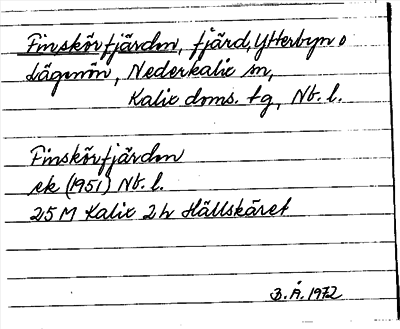 Finskörfjärden, fjärd, Ytterbyn o
Lågmön, Nederkalix sn,
Kalix doms. tg, Nb. l.
Finskörfjärden
ek (1951) Nb. l.
25 M Kalix 2h Hällskäret
B. Å. 1972